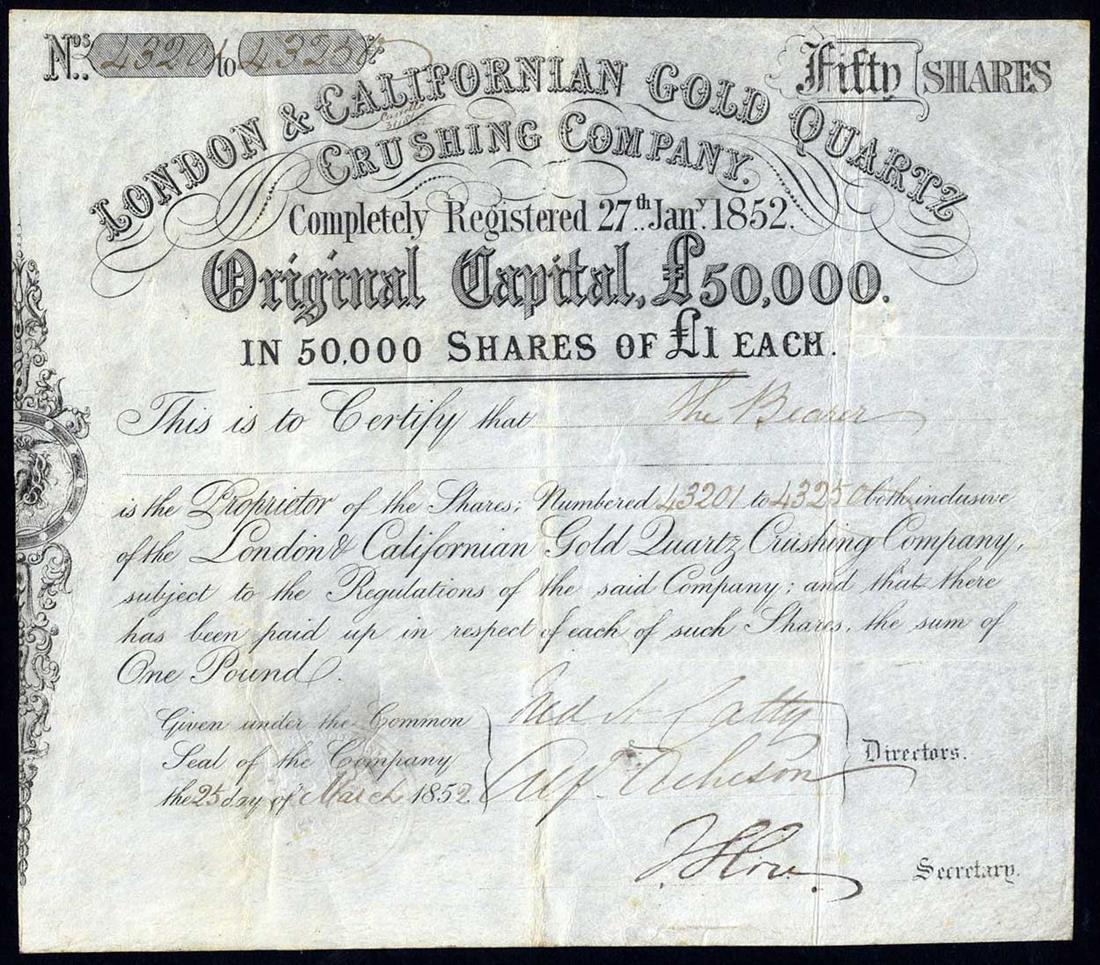 Nos. 43201 to 43250
Fifty SHARES
LONDON & CALIFORNIAN GOLD QUARTZ
CRUSHING COMPANY.
Completely Registered 27th Jany. 1852.
Original Capital, £50,000.
IN 50,000 SHARES OF £1 EACH.
This is to Certify that the Bearer
is the Proprietor of the Shares, Numbered 43201 to 43250 both inclusive
of the London & Californian Gold Quartz Crushing Company,
subject to the Regulations of the said Company; and that there
has been paid up in respect of each of such Shares, the sum of
One Pound.
Given under the Common
Seal of the Company
the 25 day of March 1852.
Catty
Acheson
Directors.
Secretary.